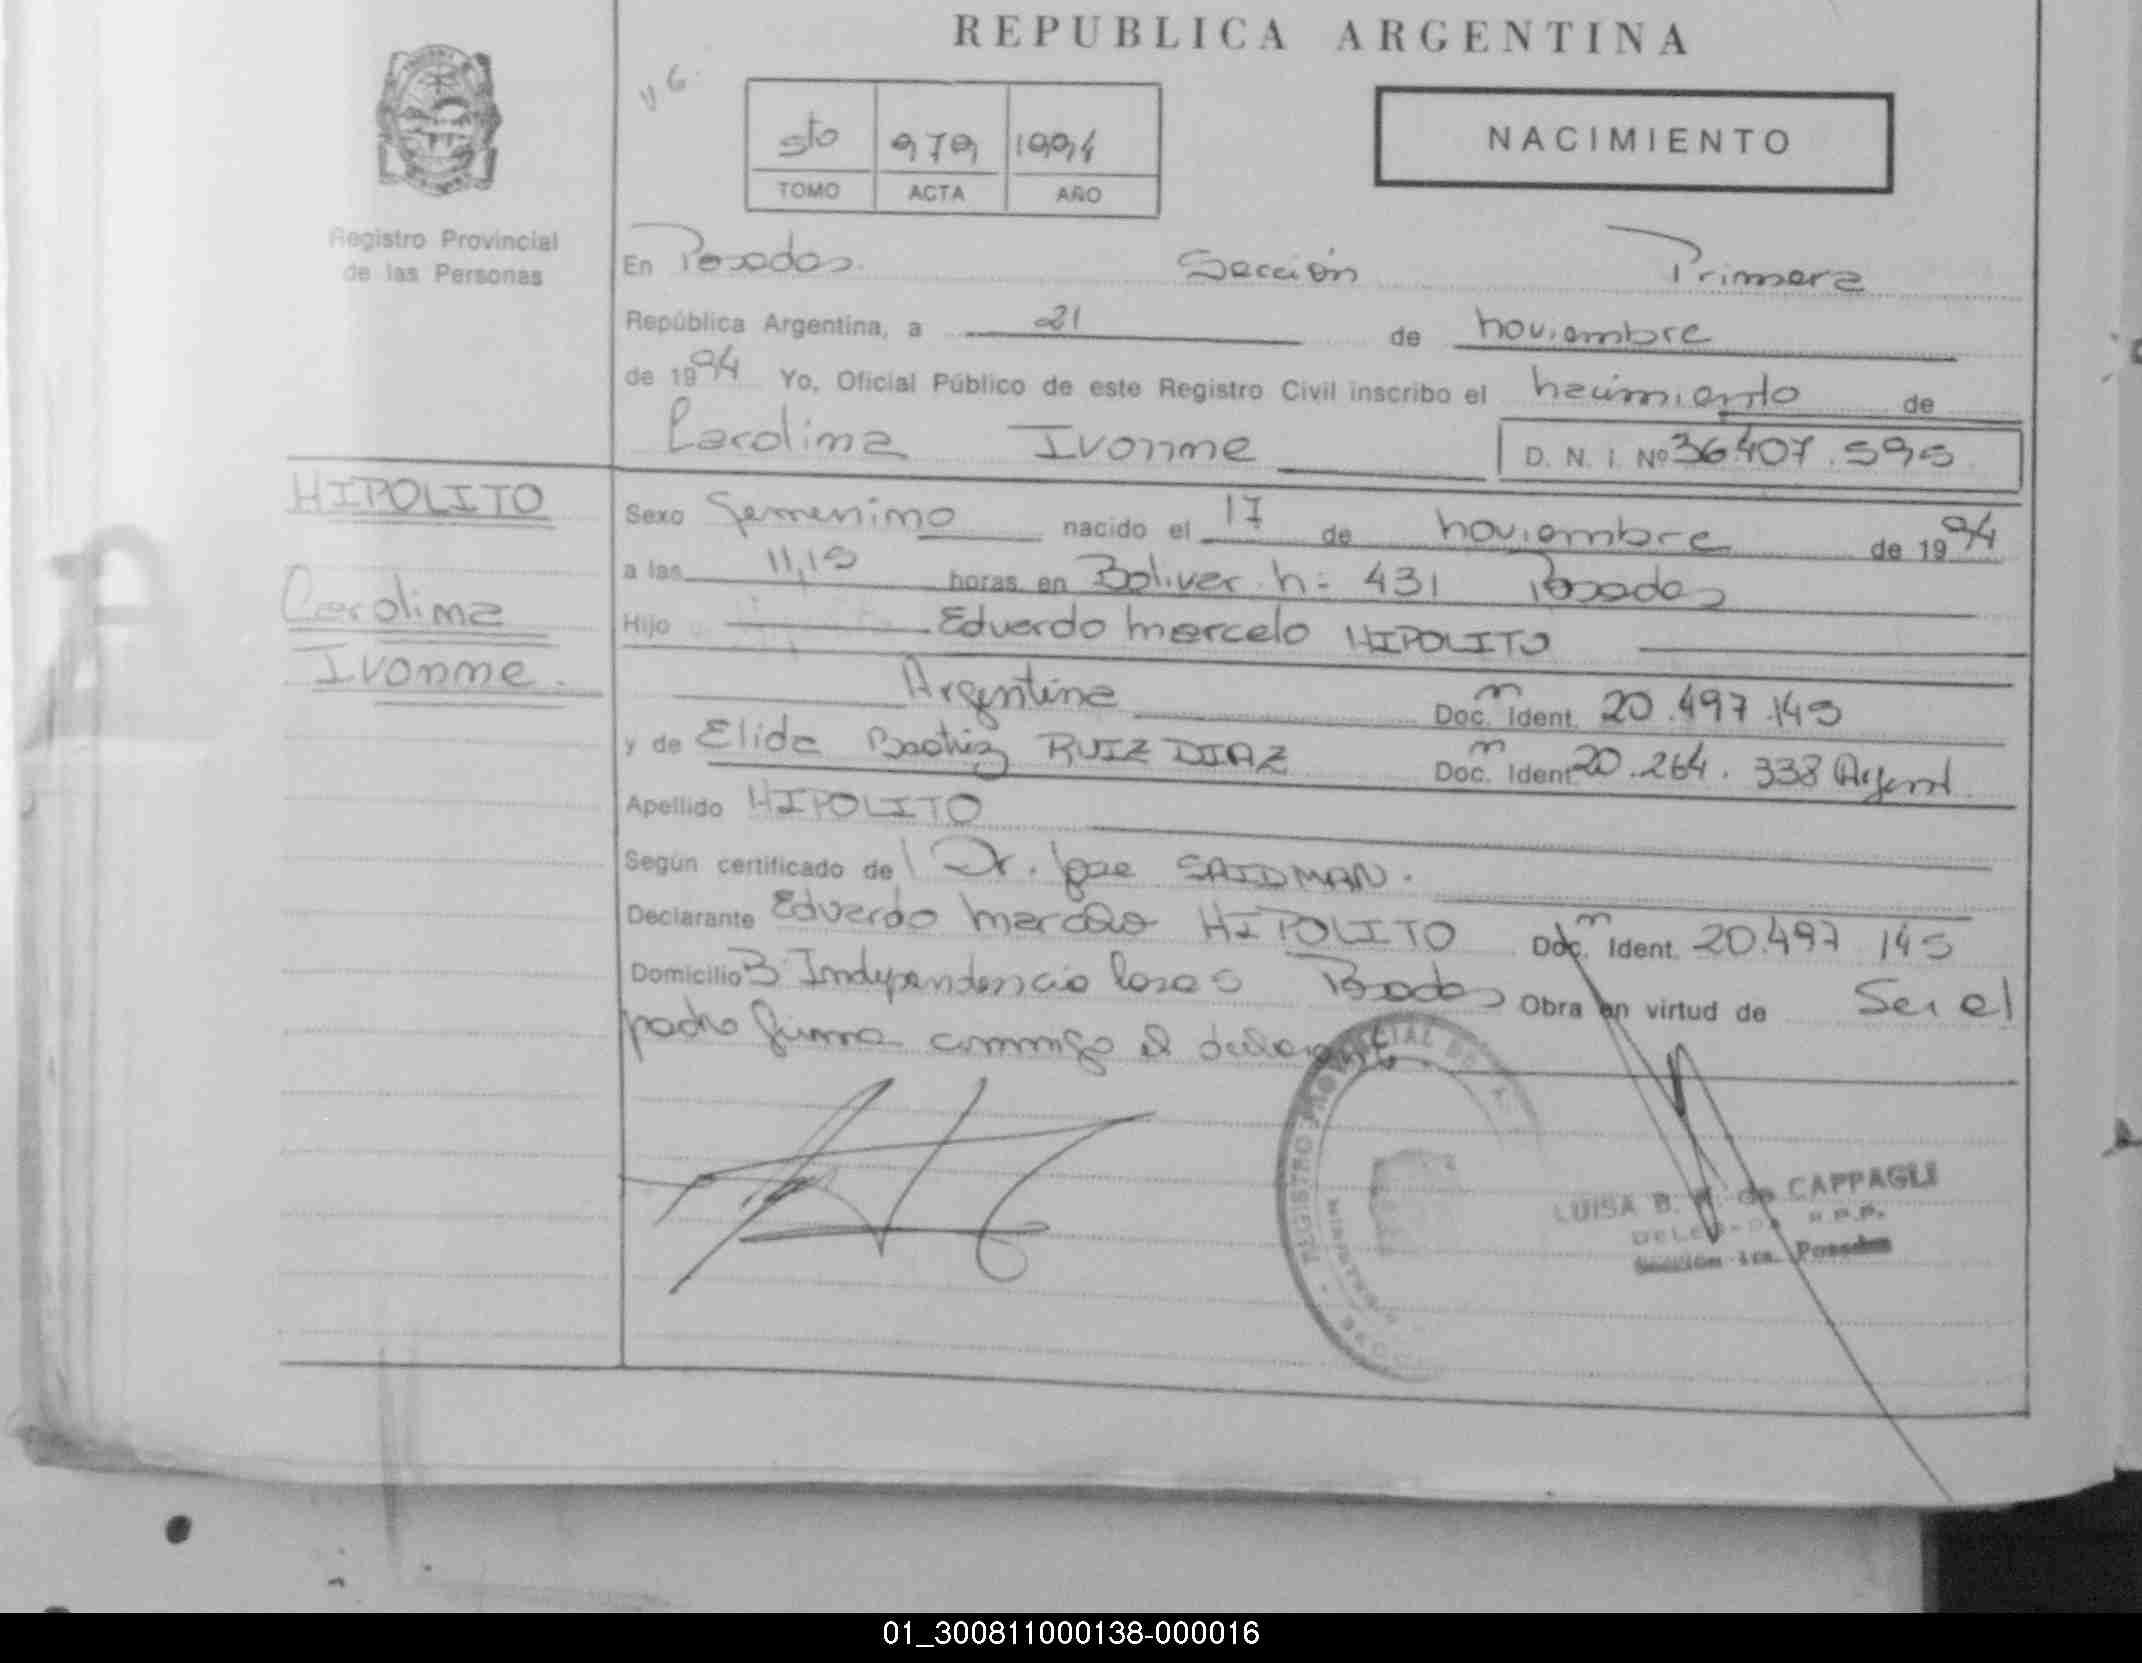 REPUBLICA ARGENTINA
5to 979 1994
TOMO ACTA AÑO
NACIMIENTO
Registro Provincial
de las Personas
En Posadas Sección Primera
República Argentina, a 21 de noviembre
de 1994 Yo, Oficial Público de este Registro Civil inscribo el nacimiento de
Carolina Ivonne D. N. I. Nº 36.407.595
HIPOLITO
Carolina
Ivonne.
Sexo Femenino nacido el 17 de noviembre de 1994
a las 11,15 horas en Bolivar n: 431 Posadas
Hijo Eduardo Marcelo HIPOLITO
Argentina Doc. Ident. 20.497.145
y de Elida Beatriz RUIZ DIAZ Doc. Ident. 20.264.338 Argent
Apellido HIPOLITO
Según certificado de Dr. Jose SAIDMAN.
Declarante Eduardo Marcelo HIPOLITO Doc. Ident. 20.497 145
Domicilio B Independencia Posadas Obra en virtud de Ser el
padre firma conmigo el declarante
REGISTRO PROVINCIAL DE
LUISA B. de CAPPAGLI
DELEGADA R.P.P.
Sección 1ra. Posadas
01_300811000138-000016